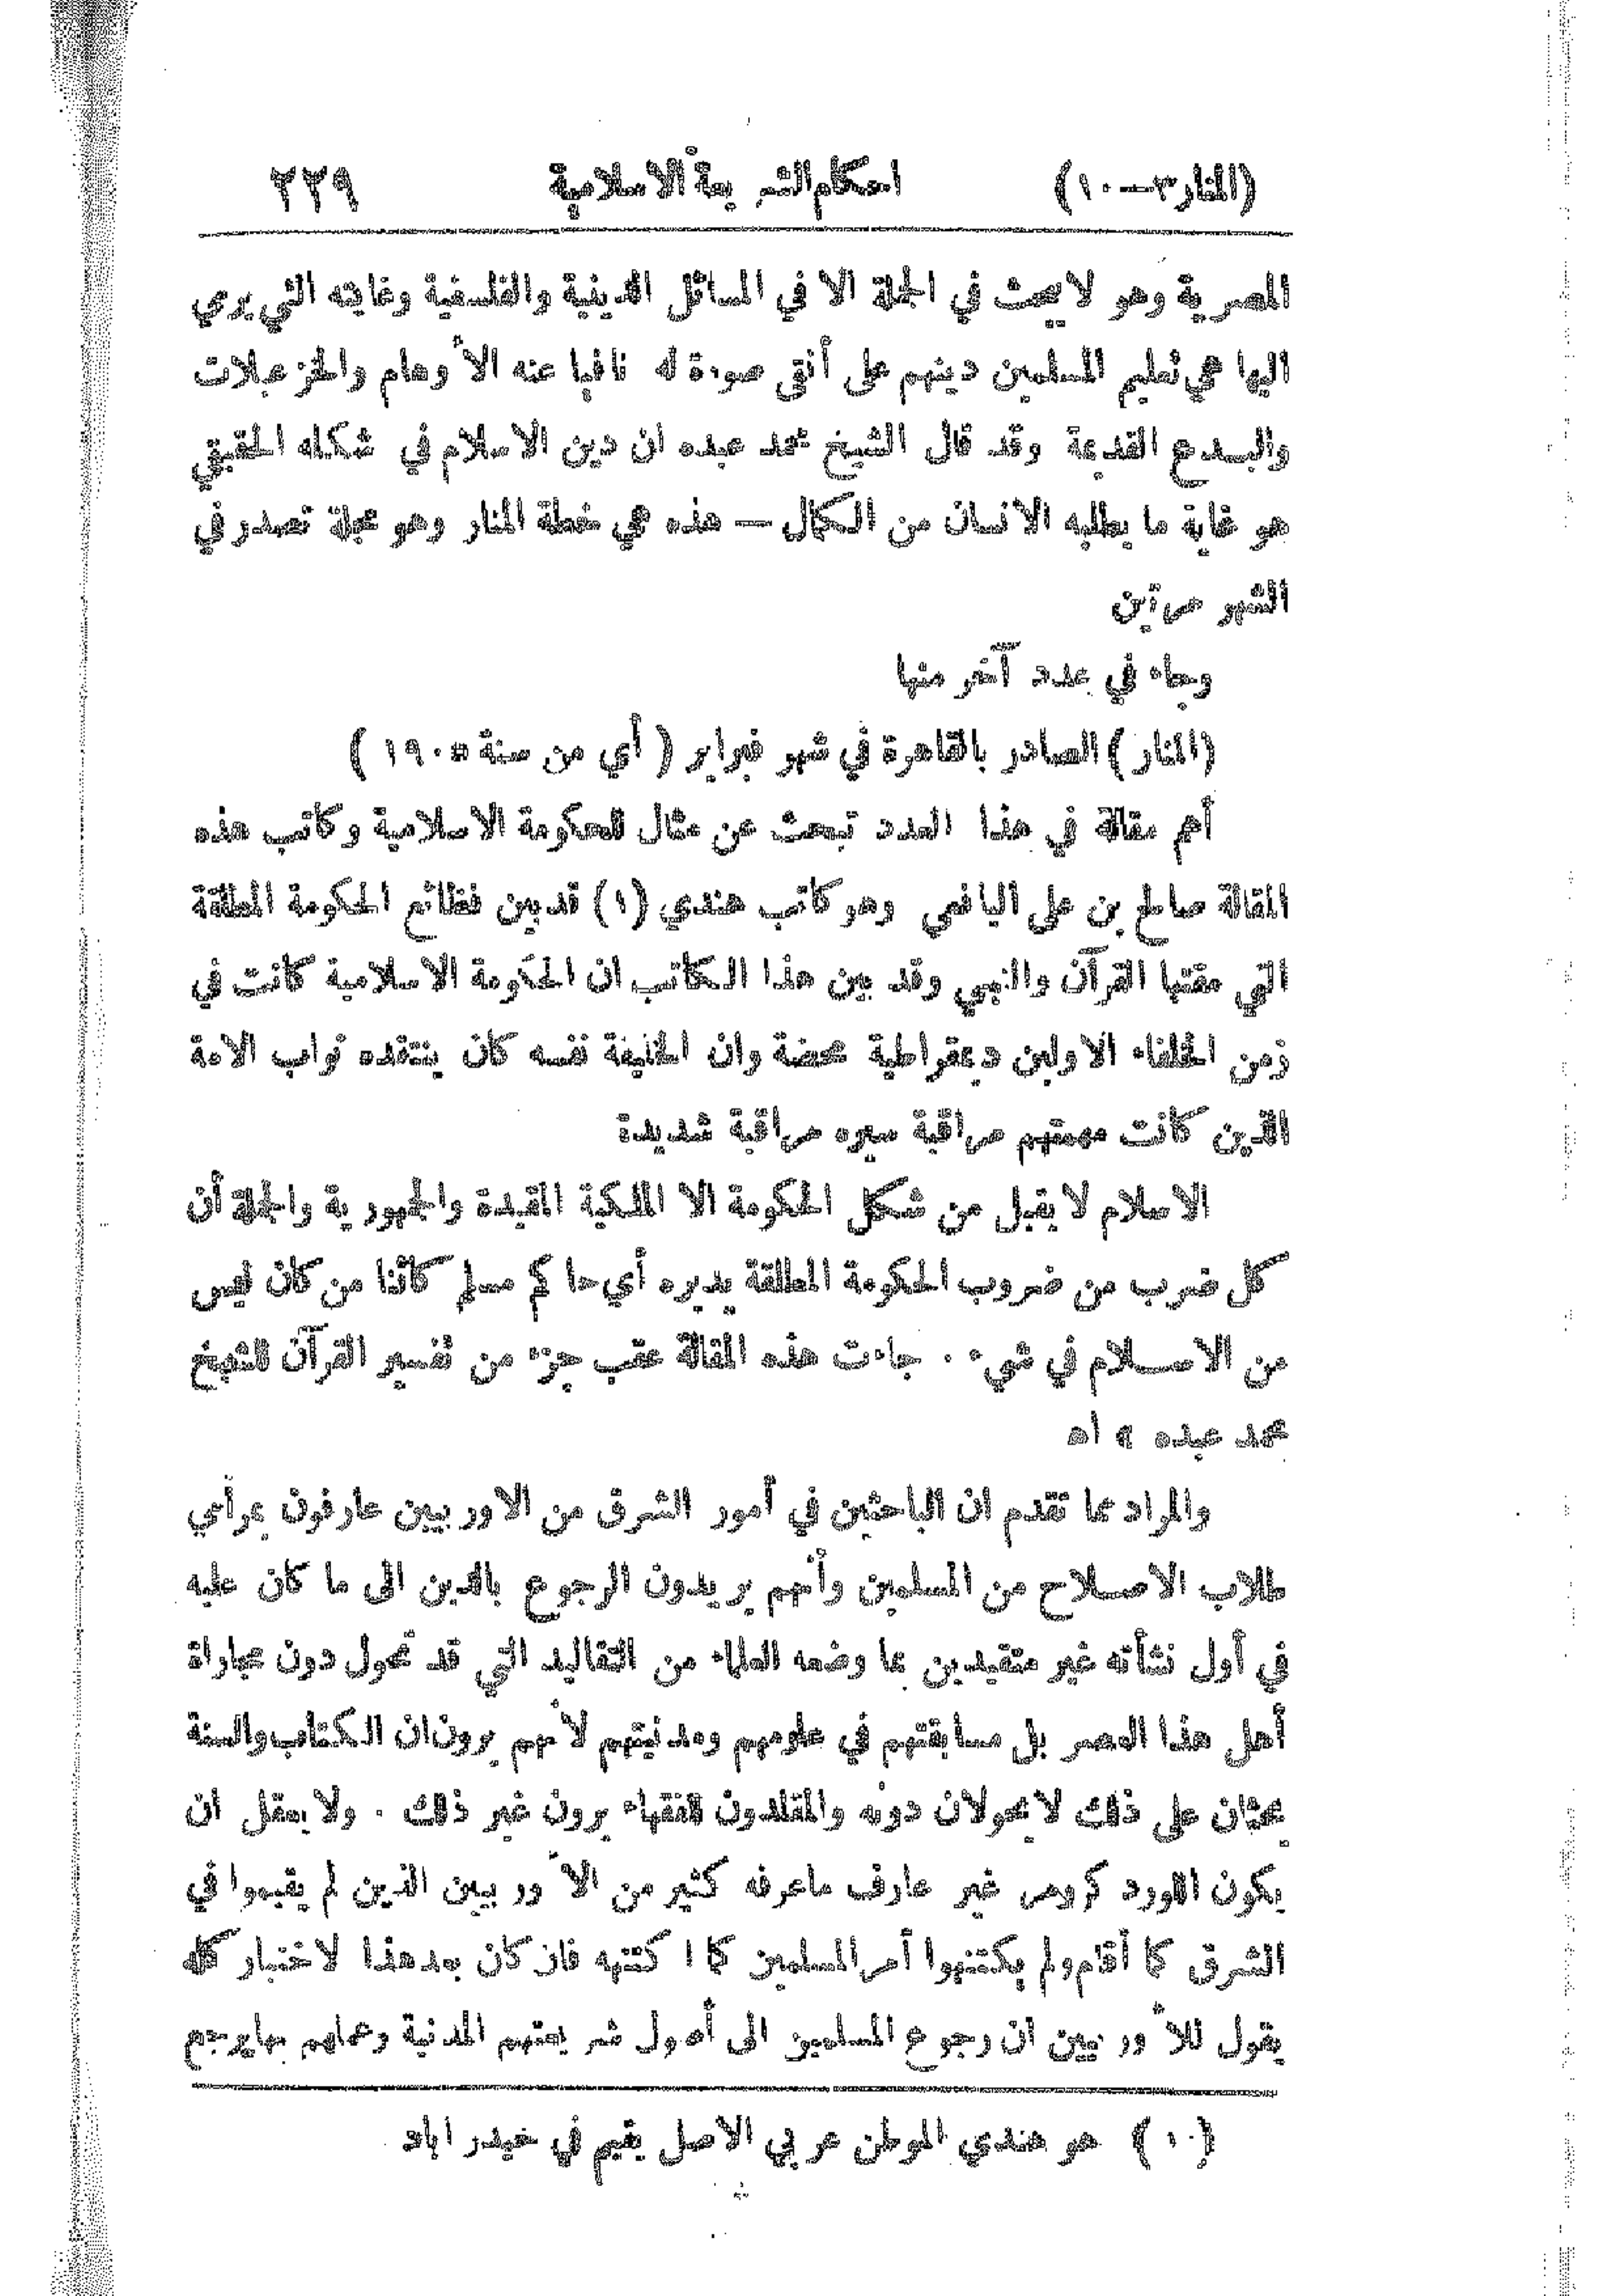 (المنار ٣ــ١٠) احكام الشريعة الاسلامية ٢٣٩
المصرية وهو لا يبحث في المجلة الا في المسائل الدينية والفلسفية وغايته التي يرمي
اليها هي تعليم المسلمين دينهم على أنقى صورة له نافيا عنه الأوهام والخزعبلات
والبدع القديمة وقد قال الشيخ محمد عبده ان دين الاسلام في شكله الحقيقي
هو غاية ما يطلبه الانسان من الكمال — هذه هي خطة المنار وهو مجلة تصدر في
الشهر مرتين
وجاء في عدد آخر منها
(المنار) الصادر بالقاهرة في شهر فبراير ( أي من سنة ١٩٠٥ )
أهم مقالة في هذا العدد تبحث عن مثال للحكومة الاسلامية وكاتب هذه
المقالة صالح بن علي اليافعي وهو كاتب هندي (١) قد بين فظائع الحكومة المطلقة
التي مقتها القرآن والنبي وقد بين هذا الكاتب ان الحكومة الاسلامية كانت في
زمن الخلفاء الاولين ديمقراطية محضة وان الخليفة نفسه كان ينتقده نواب الامة
الذين كانت مهمتهم مراقبة سيره مراقبة شديدة
الاسلام لا يقبل من شكل الحكومة الا الملكية المقيدة والجمهورية والجملة أن
كل ضرب من ضروب الحكومة المطلقة يديره أي حاكم مسلم كائنا من كان ليس
من الاسلام في شيء . جاءت هذه المقالة عقب جزء من تفسير القرآن للشيخ
محمد عبده » اه
والمراد مما تقدم ان الباحثين في أمور الشرق من الاوربيين عارفون برأي
طلاب الاصلاح من المسلمين وأنهم يريدون الرجوع بالدين الى ما كان عليه
في أول نشأته غير متقيدين بما وضعه العلماء من التقاليد التي قد تحول دون مجاراة
أهل هذا العصر بل مسابقتهم في علومهم ومدنيتهم لأنهم يرون ان الكتاب والسنة
يحثان على ذلك لا يحولان دونه والمقلدون للفقهاء يرون غير ذلك . ولا يعقل ان
يكون اللورد كرومر غير عارف ما عرفه كثير من الأوربيين الذين لم يقيموا في
الشرق كما أقام ولم يكتنهوا أمر المسلمين كما اكتنهه فان كان بعد هذا الاختبار كله
يقول للأوربيين ان رجوع المسلمين الى أصول شريعتهم المدنية وعملهم بها يرجع
(١) هو هندي الموطن عربي الاصل يقيم في حيدر اباد